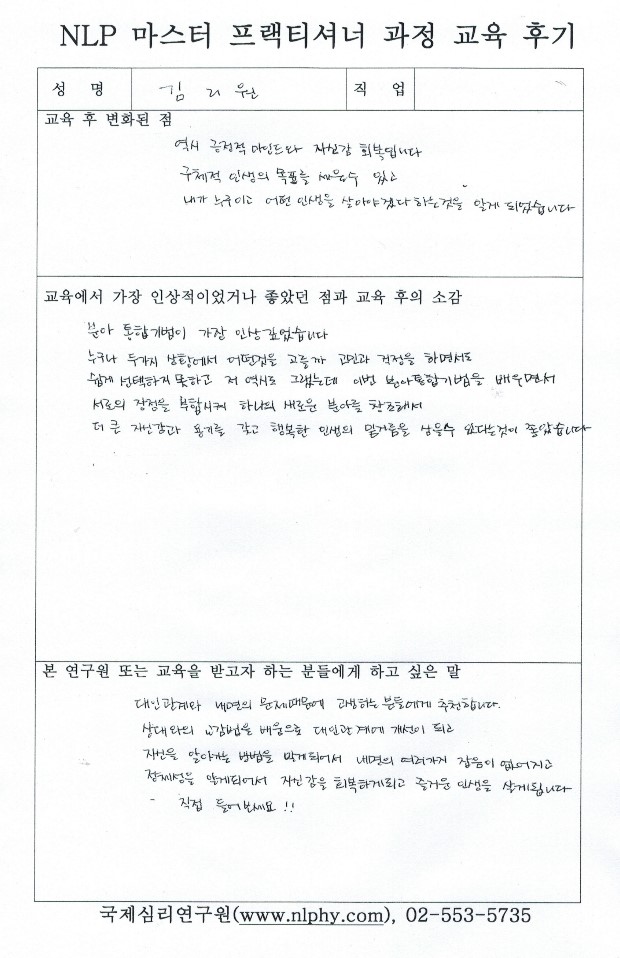 NLP 마스터 프랙티셔너 과정 교육 후기
성 명 김 리 원 직 업
교육 후 변화된 점
역시 긍정적 마인드와 자신감 회복됩니다
구체적 인생의 목표를 세울수 있고
내가 누구이고 어떤 인생을 살아야겠다 하는것을 알게 되었습니다
교육에서 가장 인상적이었거나 좋았던 점과 교육 후의 소감
분아 통합기법이 가장 인상깊었습니다
누구나 두가지 상황에서 어떤것을 고를까 고민과 걱정을 하면서도
쉽게 선택하지 못하고 저 역시도 그랬는데 이번 분아통합기법을 배우면서
서로의 장점을 복합시켜 하나의 새로운 분아를 창조해서
더 큰 자신감과 용기를 갖고 행복한 인생의 밑거름을 삼을수 있다는것이 좋았습니다
본 연구원 또는 교육을 받고자 하는 분들에게 하고 싶은 말
대인관계와 내면의 문제때문에 고생하는 분들에게 추천합니다.
상대와의 교감법을 배움으로 대인관계에 개선이 되고
자신을 알아가는 방법을 알게되어서 내면의 여러가지 잡음이 없어지고
정체성을 알게되어서 자신감을 회복하게되고 즐거운 인생을 살게됩니다
직접 들어보세요 !!
국제심리연구원(www.nlphy.com), 02-553-5735